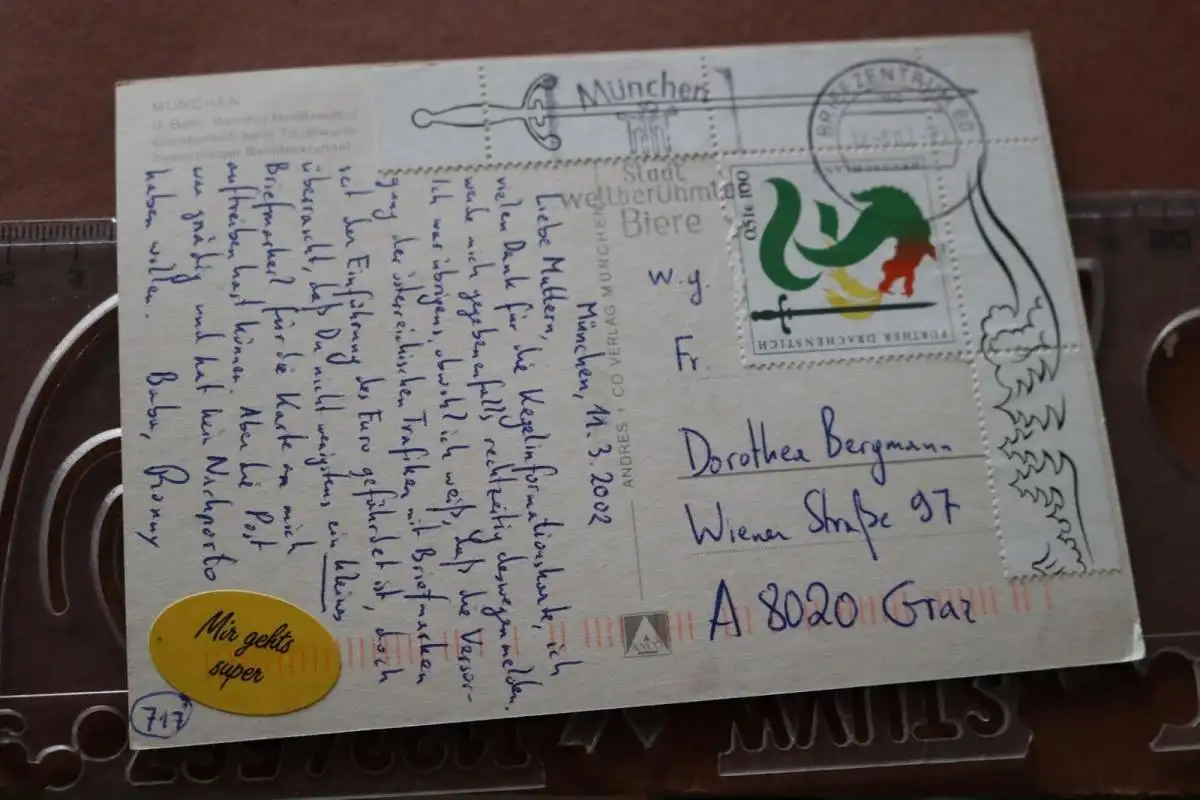 MÜNCHEN
München, 11.3.2002
Liebe Muttern,
vielen Dank für die Kegelinformationskarte, ich
werde mich gegebenenfalls rechtzeitig deswegen melden.
Ich war übrigens, obwohl ich weiß, daß die Versor-
gung der österreichischen Trafiken mit Briefmarken
seit der Einführung des Euro gefährdet ist, doch
überrascht, daß Du nicht wenigstens ein kleines
Briefmarkerl für die Karte an mich
auftreiben hast können. Aber die Post
war gnädig und hat kein Nachporto
haben wollen. Bubu, Ronny
Mir gehts
super
ANDRES + CO VERLAG MÜNCHEN
ANCO
München
Stadt
weltberühmter
Biere
BRIEFZENTRUM 80
0,51€ 100
FURTHER DRACHENSTICH
Fr.
Dorothea Bergmann
Wiener Straße 97
A 8020 Graz
STUVW